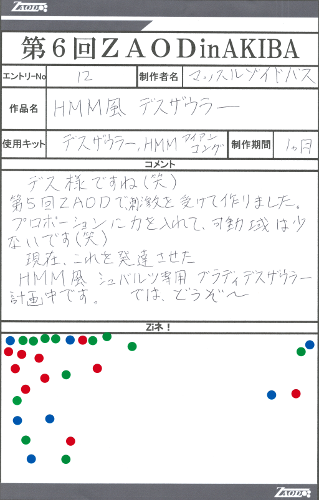 ZAOD
第6回ZAODinAKIBA
エントリーNo 12 制作者名 マッスルゾイドハズ
作品名 HMM風 デスザウラー
使用キット デスザウラー、HMM アイアンコング 制作期間 1ヶ月
コメント
デス様ですね(笑)
第5回ZAODで刺激を受けて作りました。
プロポーションに力を入れて、可動域は少
ないです(笑)
現在、これを発達させた
HMM風 シュバルツ専用 ブラディデスザウラー
計画中です。 では、どうぞ〜
Ziネ!
ZAOD